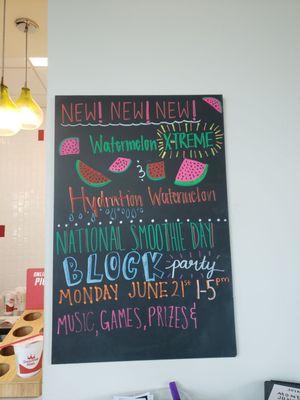 NEW! NEW! NEW!
Watermelon X-TREME
&
Hydration Watermelon
NATIONAL SMOOTHIE DAY
BLOCK party
MONDAY JUNE 21st 1-5pm
MUSIC, GAMES, PRIZES &